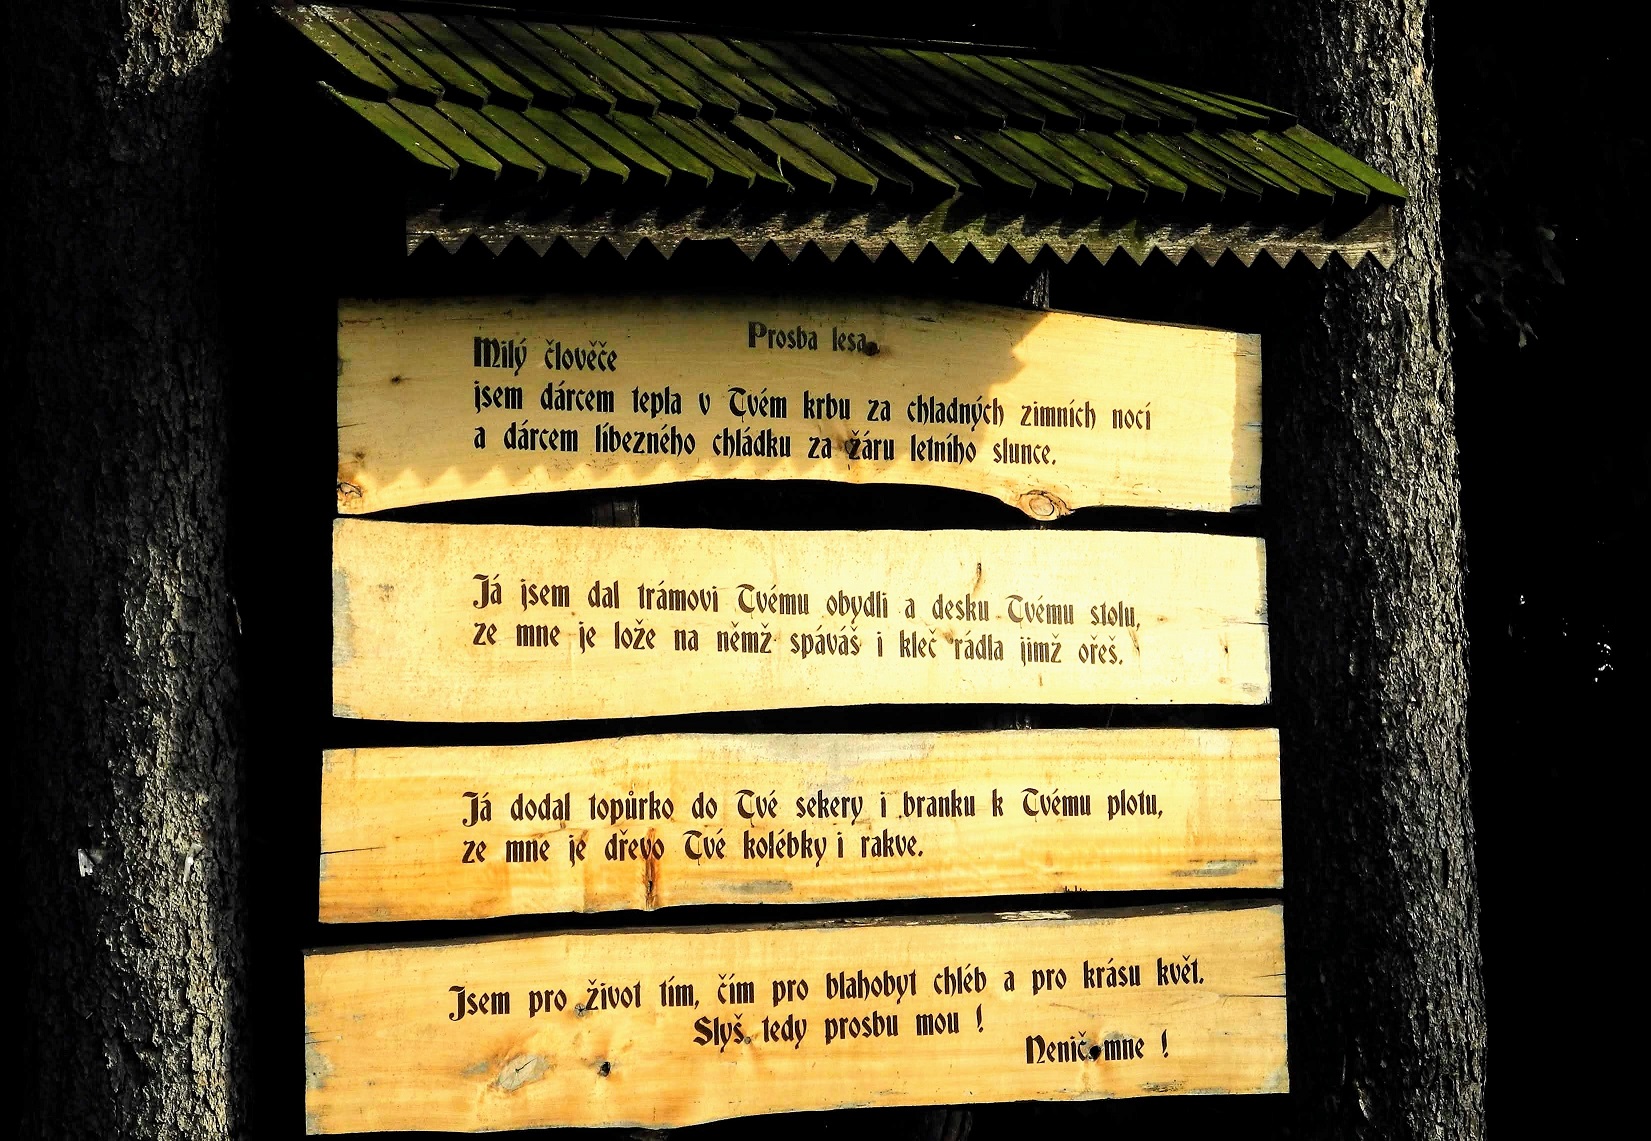 Prosba lesa
Milý člověče
jsem dárcem tepla v Tvém krbu za chladných zimních nocí
a dárcem líbezného chládku za žáru letního slunce.
Já jsem dal trámoví Tvému obydlí a desku Tvému stolu,
ze mne je lože na němž spáváš i kleč rádla jimž ořeš.
Já dodal topůrko do Tvé sekery i branku k Tvému plotu,
ze mne je dřevo Tvé kolébky i rakve.
Jsem pro život tím, čím pro blahobyt chléb a pro krásu květ.
Slyš tedy prosbu mou !
Nenič mne !